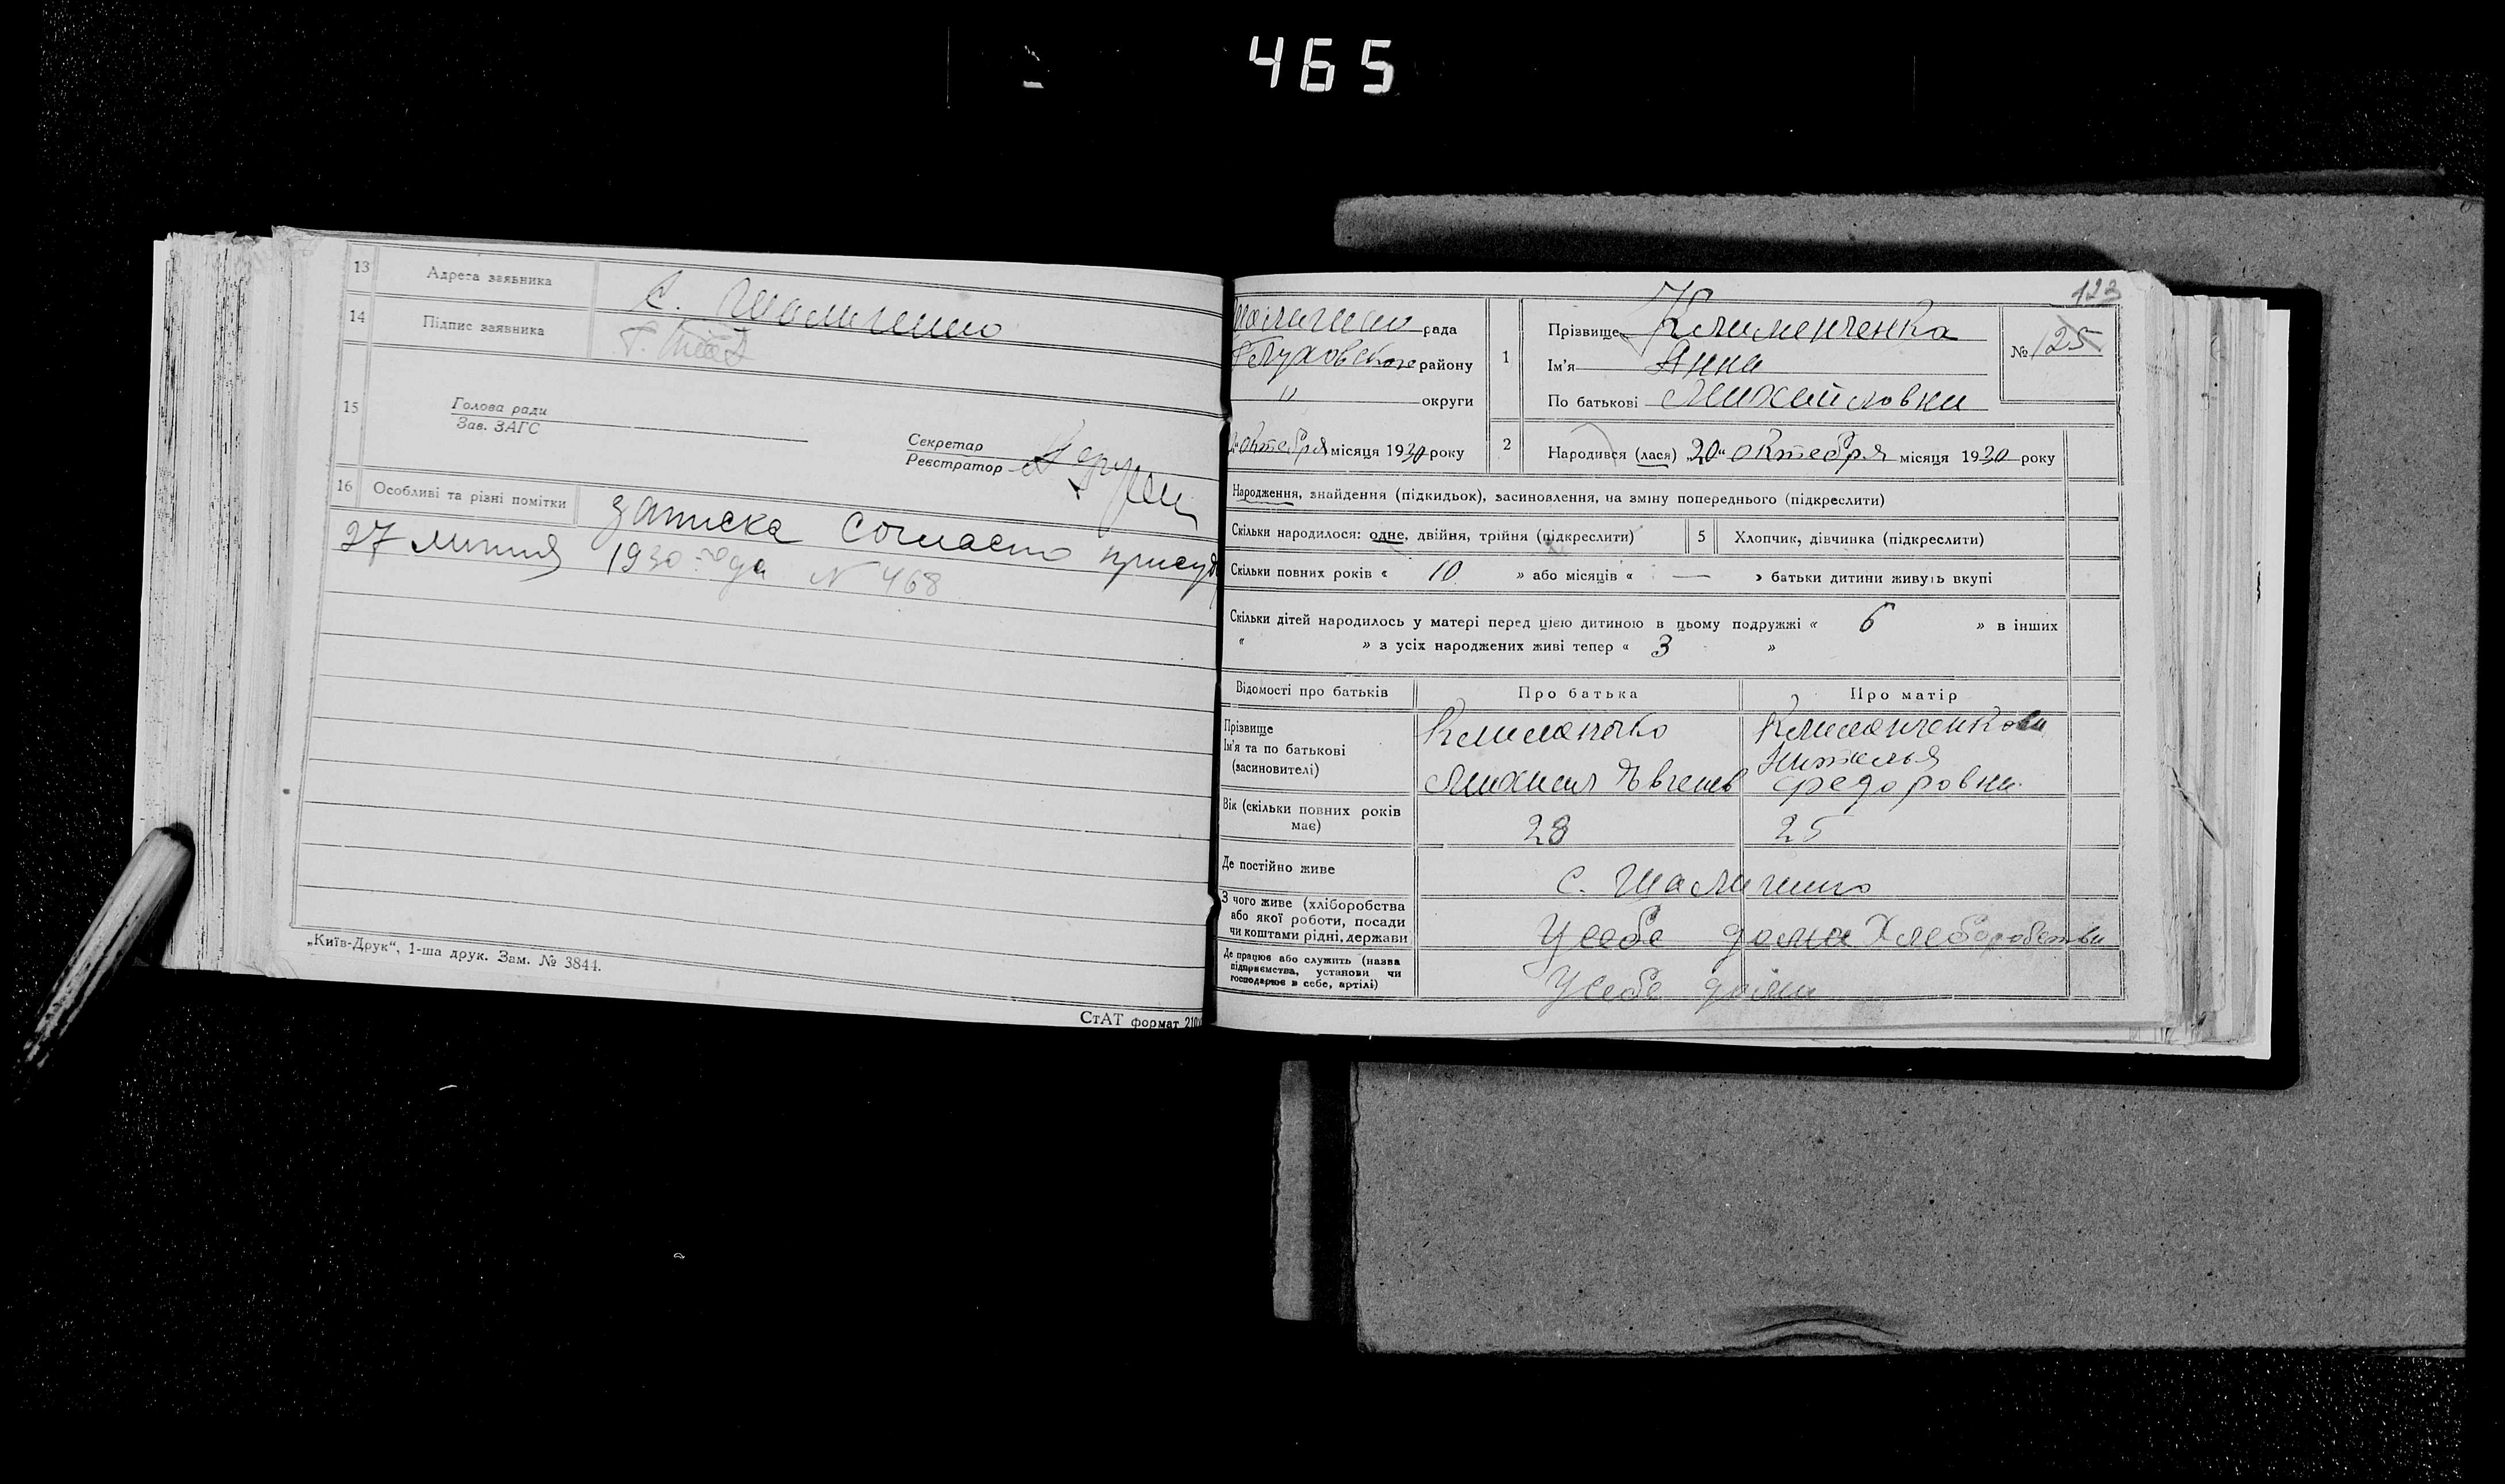 465
13 Адреса заявника с. Шалигино
14 Підпис заявника
15 Голова ради
Зав. ЗАГС
Секретар
Реєстратор
16 Особливі та різні помітки записка согласно
27 липня 1930 года N 468
„Київ-Друк“, 1-ша друк. Зам. № 3844.
СтАТ формат 210
123
Шалигино рада
Глуховського району
" округи
октебря місяця 1930 року
1 Прізвище Клименченка
Ім'я Анна
По батькові Михайловна
№ 125
2 Народився (лася) „20“ октебря місяця 1930 року
Народження, знайдення (підкидьок), засиновлення, на зміну попереднього (підкреслити)
Скільки народилося: одне, двійня, трійня (підкреслити) 5 Хлопчик, дівчинка (підкреслити)
Скільки повних років « 10 » або місяців « — » батьки дитини живуть вкупі
Скільки дітей народилось у матері перед цією дитиною в цьому подружжі « 6 » в інших
« » з усіх народжених живі тепер « 3 »
Відомості про батьків Про батька Про матір
Прізвище
Ім'я та по батькові
(засиновителі)
Михаил
Федоровна
Вік (скільки повних років має) 28 25
Де постійно живе с. Шалигино
З чого живе (хліборобства
або якої роботи, посади
чи коштами рідні, держави
У себе дома Хлеборобства
Де працює або служить (назва
підприємства, установи чи
господарює в себе, артілі)
У себе дома